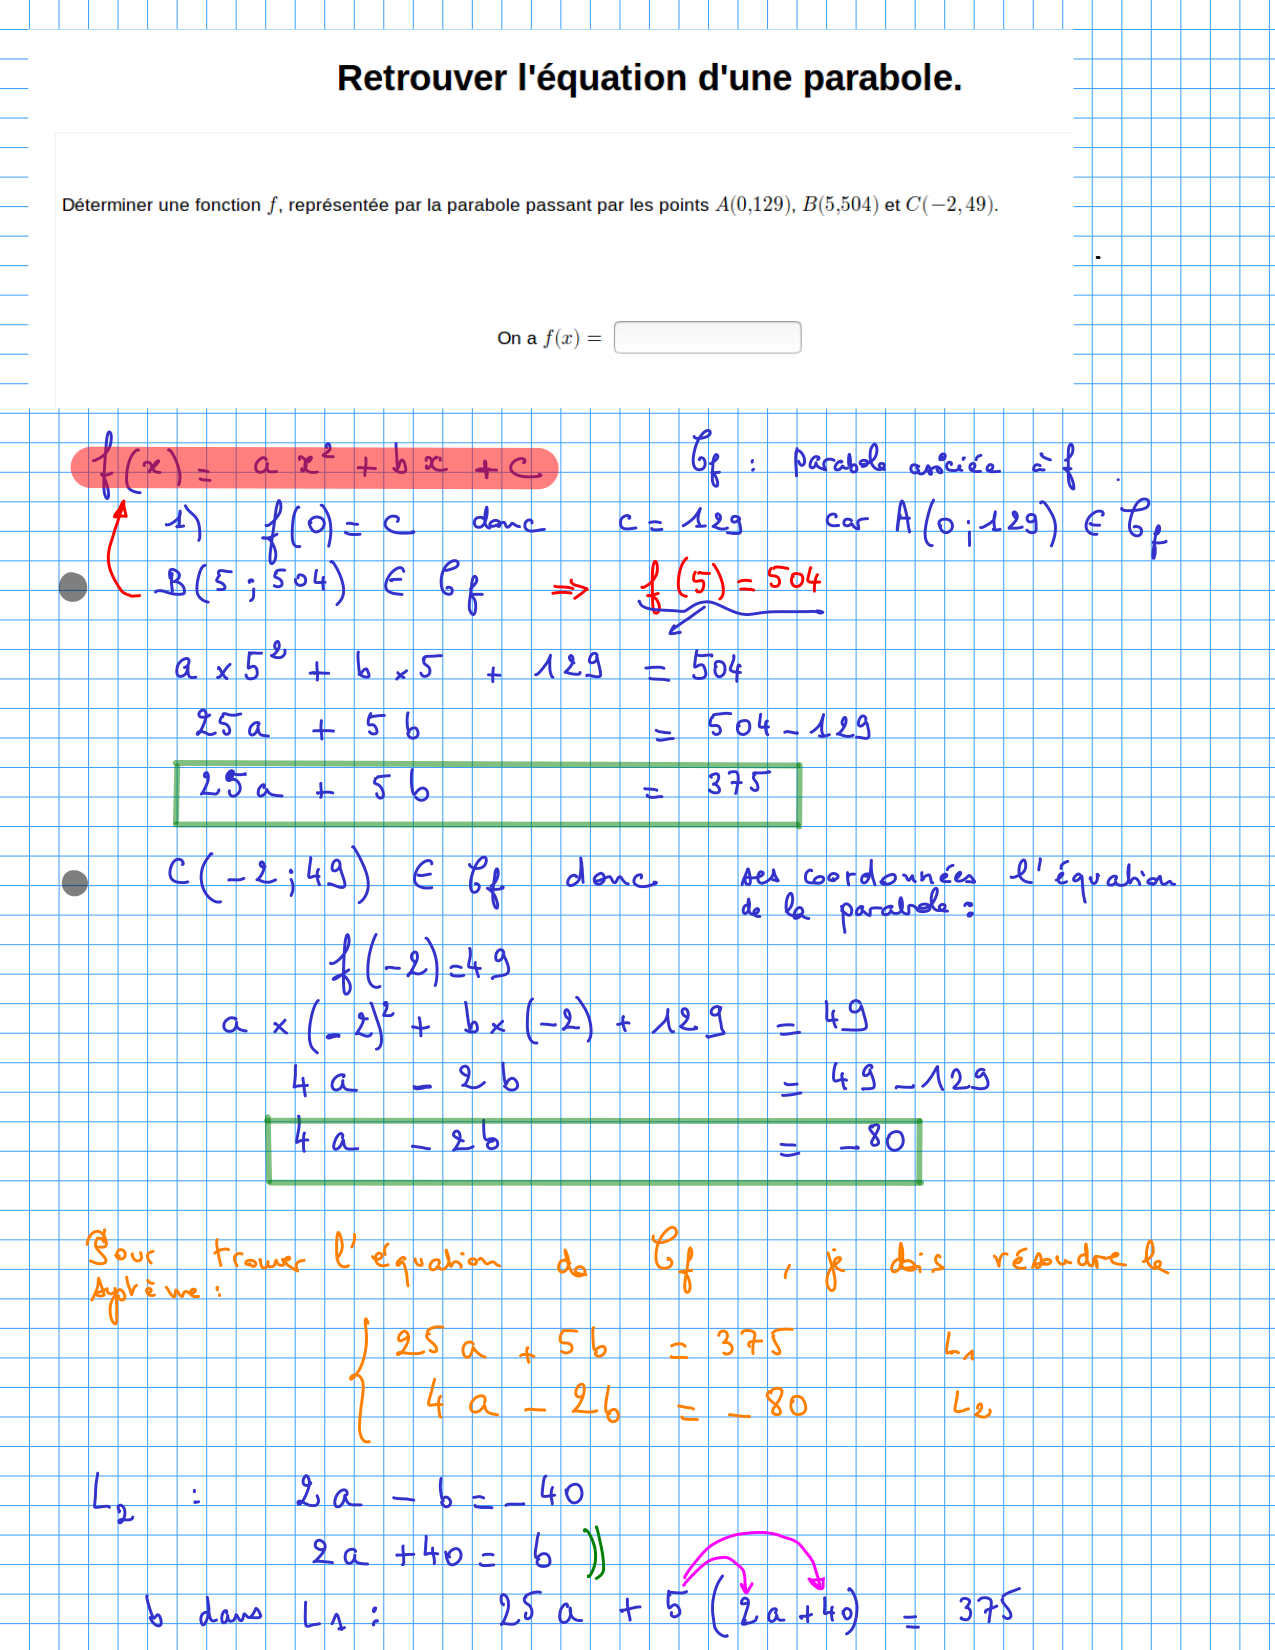 Retrouver l'équation d'une parabole.
Déterminer une fonction f, représentée par la parabole passant par les points A(0,129), B(5,504) et C(−2,49).
On a f(x) =
f(x) = ax² + bx + c
𝒞f : parabole associée à f.
1) f(0) = c donc c = 129 car A(0;129) ∈ 𝒞f
B(5;504) ∈ 𝒞f ⇒ f(5) = 504
a × 5² + b × 5 + 129 = 504
25a + 5b = 504 − 129
25a + 5b = 375
C(−2;49) ∈ 𝒞f donc ses coordonnées l'équation
de la parabole :
f(−2) = 49
a × (−2)² + b × (−2) + 129 = 49
4a − 2b = 49 − 129
4a − 2b = −80
Pour trouver l'équation de 𝒞f, je dois résoudre le
système :
{ 25a + 5b = 375 L1
4a − 2b = −80 L2
L2 : 2a − b = −40
2a + 40 = b
b dans L1 : 25a + 5(2a + 40) = 375